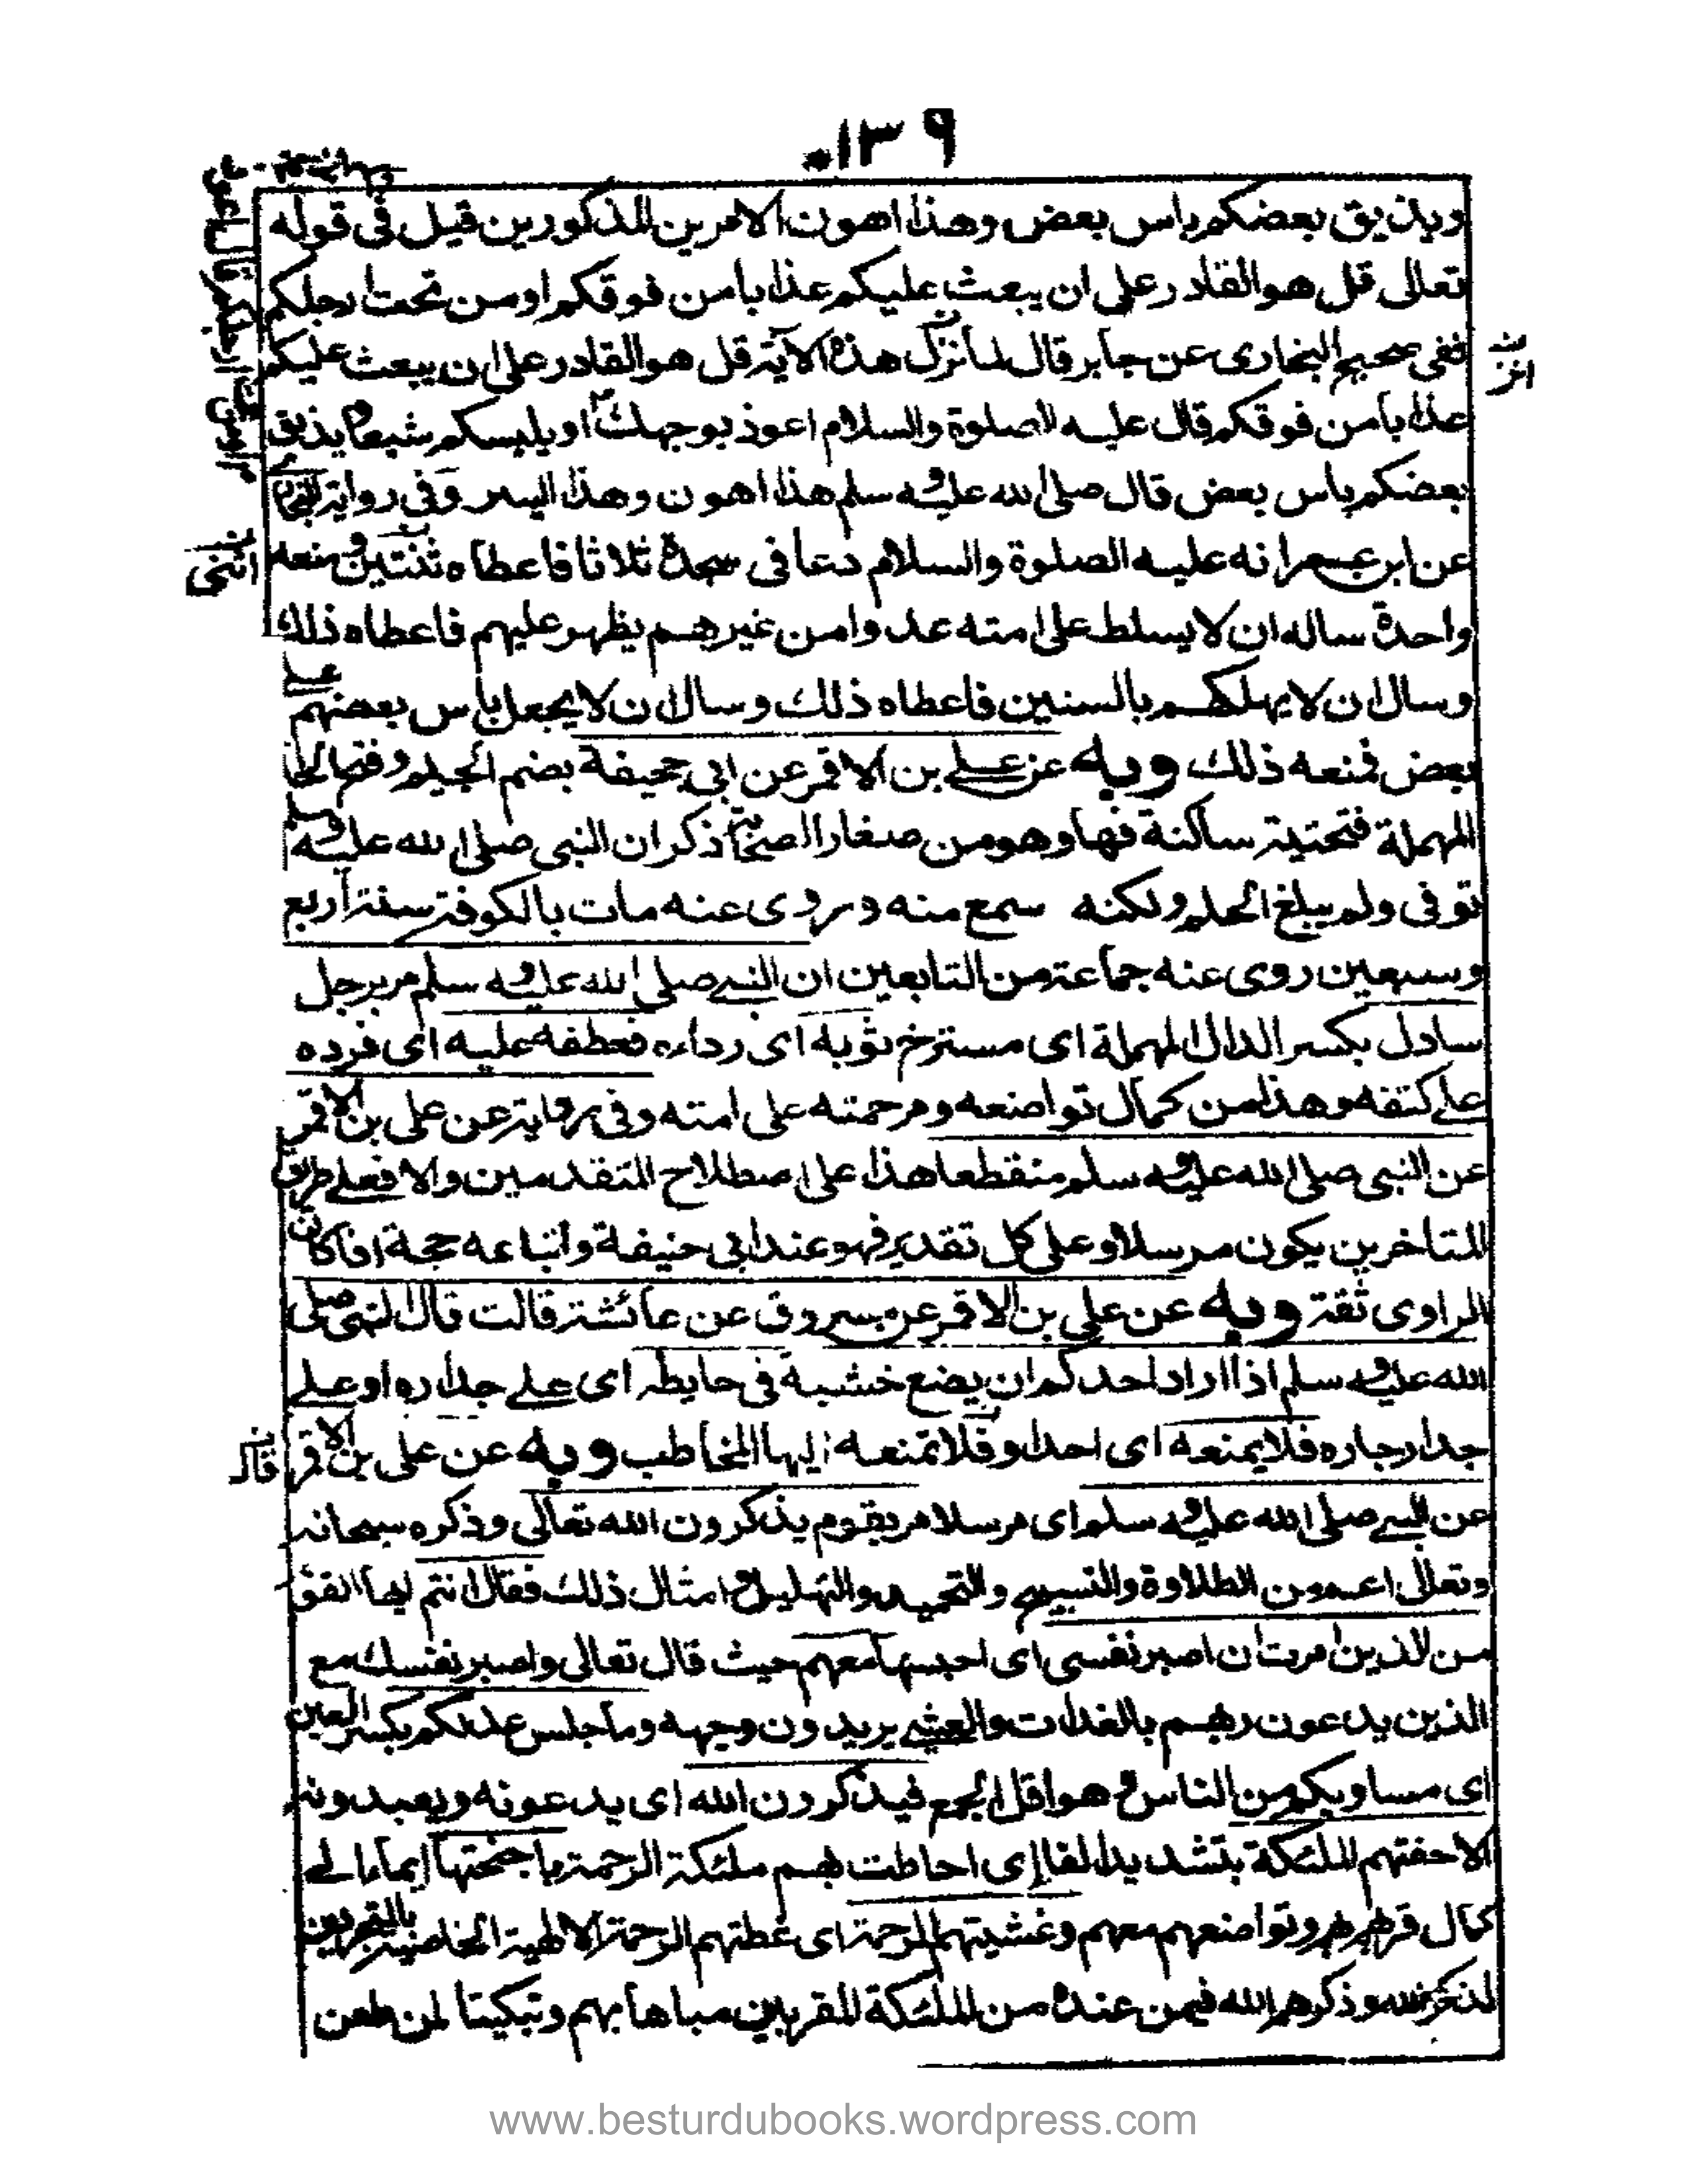 ١٣٩
ويذيق بعضكم باس بعض وهذا اهون الامرين المذكورين قيل فى قوله
تعالى قل هو القادر على ان يبعث عليكم عذابا من فوقكم او من تحت ارجلكم
ففى صحيح البخارى عن جابر قال لما نزلت هذه الآية قل هو القادر على ان يبعث عليكم
عذابا من فوقكم قال عليه الصلوة والسلام اعوذ بوجهك او يلبسكم شيعا ويذيق
بعضكم باس بعض قال صلى الله عليه وسلم هذا اهون وهذا ايسر وفى رواية
عن ابن عمر انه عليه الصلوة والسلام دعا فى سجدة ثلاثا فاعطاه ثنتين ومنعه
واحدة ساله ان لا يسلط على امته عدوا من غيرهم يظهر عليهم فاعطاه ذلك
وسال ان لا يهلكهم بالسنين فاعطاه ذلك وسال ان لا يجعل باس بعضهم على
بعض فمنعه ذلك وبه عن على بن الاقمر عن ابى جحيفة بضم الجيم وفتح الحا
المهملة فتحتية ساكنة ففا وهو من صغار الصحابة ذكر ان النبى صلى الله عليه وسلم
توفى ولم يبلغ الحلم ولكنه سمع منه وروى عنه مات بالكوفة سنة اربع
وسبعين روى عنه جماعة من التابعين ان النبى صلى الله عليه وسلم مر برجل
سادل بكسر الدال المهملة اى مسترخ ثوبه اى رداءه فعطفه عليه اى فرده
على كتفه وهذا من كمال تواضعه ومرحمته على امته وفى رواية عن على بن الاقمر
عن النبى صلى الله عليه وسلم منقطعا هذا على اصطلاح المتقدمين والا فعلى طريق
المتاخرين يكون مرسلا وعلى كل تقدير فهو عند ابى حنيفة واتباعه حجة اذا كان
الراوى ثقة وبه عن على بن الاقمر عن مسروق عن عائشة قالت قال النبى صلى
الله عليه وسلم اذا اراد احدكم ان يضع خشبة فى حايطه اى على جداره او على
جدار جاره فلا يمنعه اى احدا وفلا تمنعه ايها المخاطب وبه عن على بن الاقمر
قال
عن النبى صلى الله عليه وسلم اى مرسلا مر بقوم يذكرون الله تعالى وذكره سبحانه
وتعالى اعم من التلاوة والتسبيح والتحميد والتهليل وامثال ذلك فقال انتم ايها القوم
من الذين امرت ان اصبر نفسى اى احبسها معهم حيث قال تعالى واصبر نفسك مع
الذين يدعون ربهم بالغداة والعشى يريدون وجهه وما جلس عدلكم بكسر العين
اى مساويكم من الناس وهو اقل الجمع فيذكرون الله اى يدعونه ويعبدونه
الا حفتهم الملئكة بتشديد الفا اى احاطت بهم ملئكة الرحمة باجنحتها ايماءا الى
كمال قربهم وتواضعهم معهم وغشيتهم الرحمة اى غطتهم الرحمة الالهية الخاصة
وذكرهم الله فيمن عنده من الملئكة المقربين مباهاة بهم وتبكيتا لمن طعن
www.besturdubooks.wordpress.com